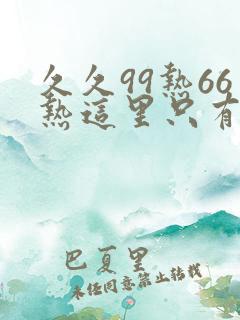 久久99热66
热這里只有
巴夏里
未经同意禁止转载